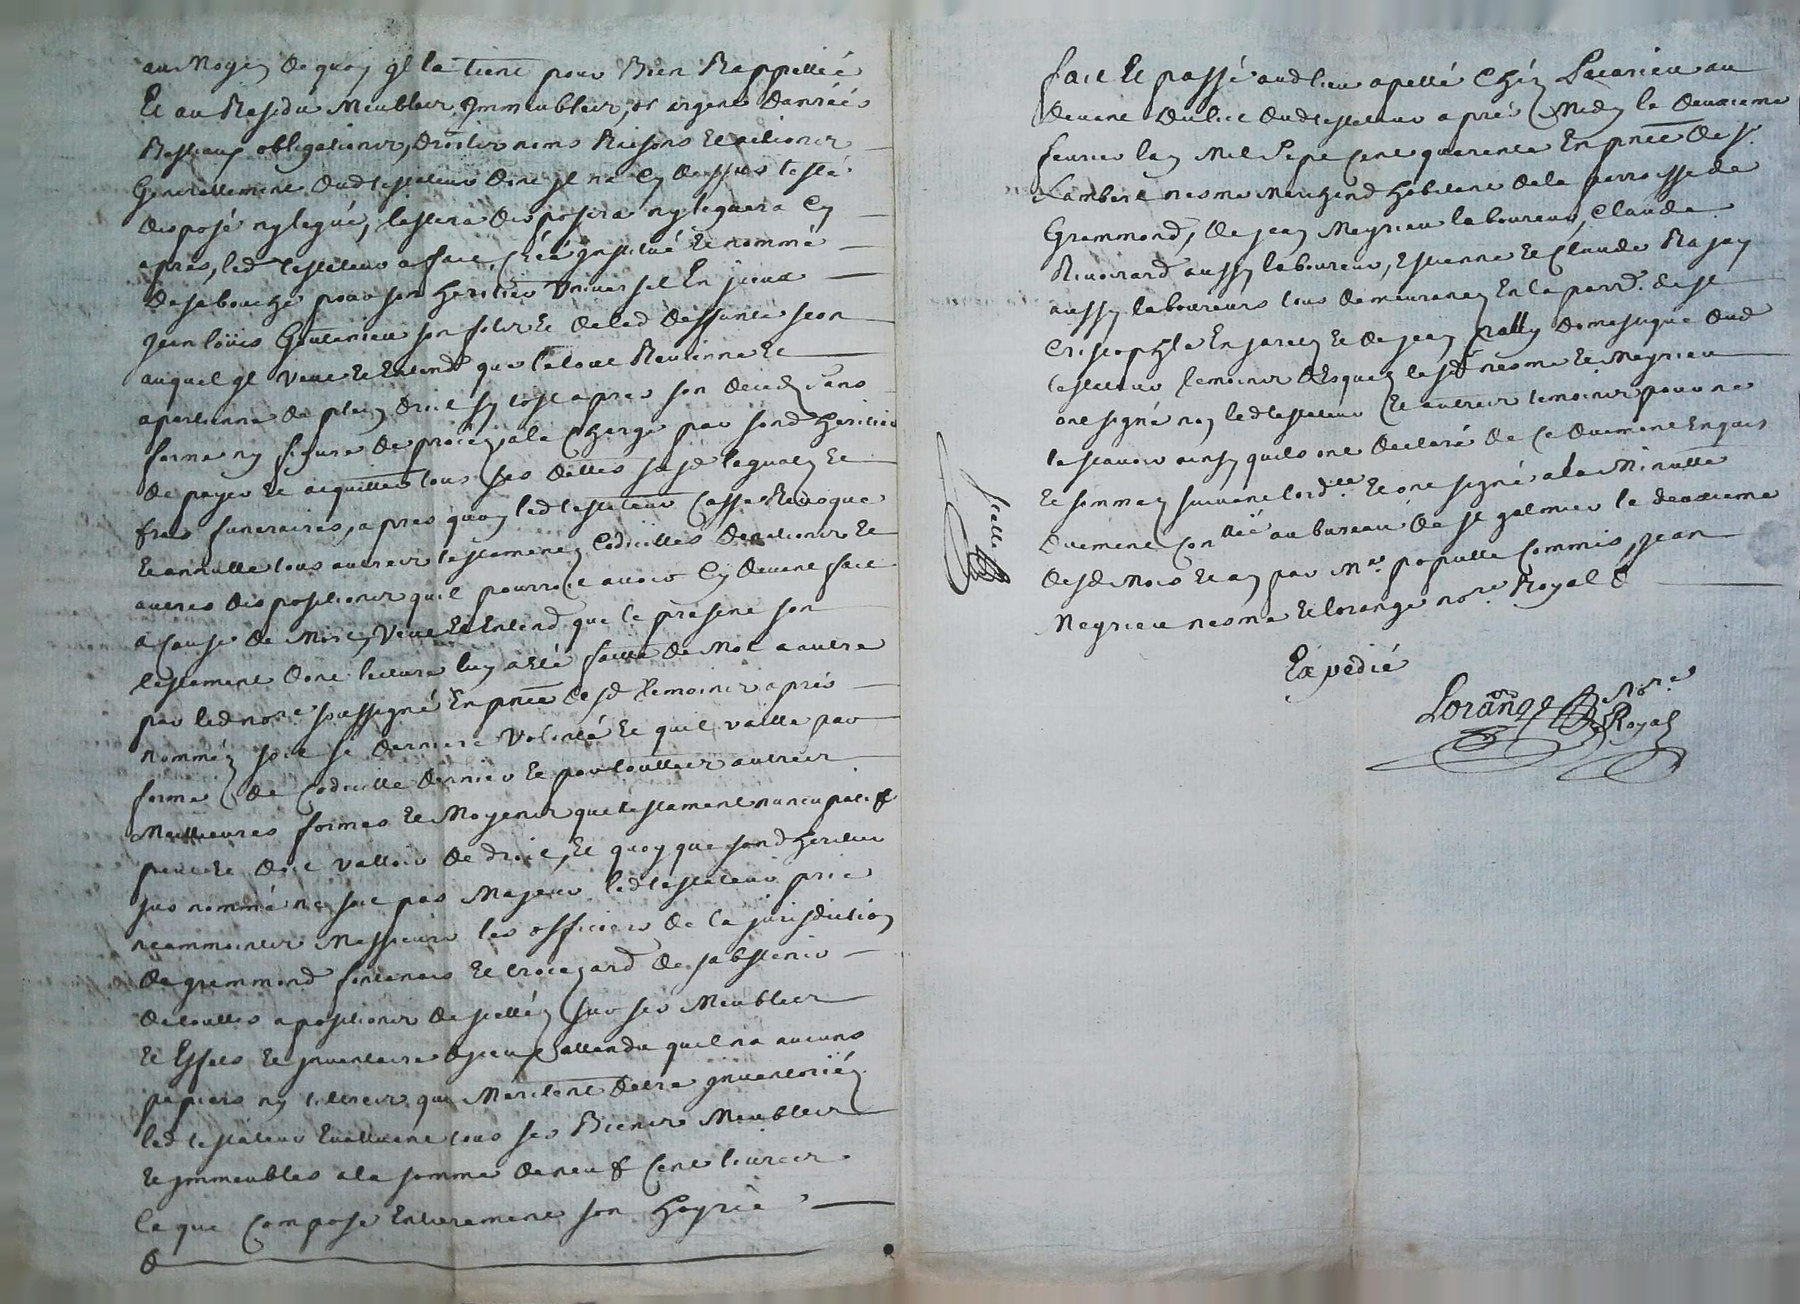 au Moyen de quoy il la tient pour Bien Rappellée
Et au Residu Meubles, Immeubles, or argent danrées
Bestiaux obligations, droits noms Raisons Et actions
Generallement dud testateur dont il na Cy dessus testé
disposé ny legué, testera disposera ny leguera Cy
apres, led testateur a fait, Créé institué Et nommé
de sa bouche pour son heritier Universel En jceux
Jean loüis son fils Et de lad deffunte
auquel il Veut Et Entend que le tout Revienne Et
apartienne de plein droit sy tost apres son decedz Sans
forme ny figure de procez, a la Charge par sond heritier
de payer Et acquitter tous ses dettes sesd legatz Et
frais funeraires, apres quoy led testateur Casse Revoque
Et annulle tous autres testamentz Codicilles donations Et
autres dispositions quil pourroit avoir Cy devant fait
a Cause de Mort, Veut Et Entend que le present son
testament dont lecture luy a Eté faitte de Mot a autre
par led nore soussigné En pnce desd Temoins apres
nommez soit sa derniere Volonté Et quil vaille par
forme de Codicille dernier Et par touttes autres
Meilleures formes Et Moyens que testament nuncupatif
peut Et doit valloir de droit, Et quoy que sond heritier
sus nommé ne soit pas Majeur led testateur prie
neammoins Messieurs les officiers de la jurisdiction
de grammond fontanais Et de sabstenir
de touttes apositions de scellez sur ses Meubles
Et Effets Et inventaire djceux attendu quil na aucuns
papiers ny tittres qui Meritent detre inventoriéz
led testateur Evaluant tous ses Biens Meubles
Et immeubles a la somme de neuf Cent livres
Ce que Compose Entierement son hoyrie
Fait Et passé aud lieu apellé Chéz au
devant du lict dud testateur aprés Midy le deuxieme
fevrier lan Mil Sept Cent quarente En pnce de sr
Lambert nesme Marchand habitant de la parroisse de
Grammond, de jean Meyrieu laboureur, Claude
aussy laboureur, Estienne Et Claude
aussy laboureurs tous demeurantz En la parr. de st
Cristophle En jarez Et de jean domestique dud
testateur temoins desquelz lesd nesme Et Meyrieu
ont signé non led testateur Et autres temoins pour ne
le scavoir ainsy quils ont declaré de Ce duement Enquis
Et sommez suivant lord.ce Et ont signé a la Minutte
duement Con.llée au bureau de st galmier le deuxieme
desd Mois Et an par Mr populle Commis, jean
Meyrieu nesme Et lorange nore Royal
Scellé
Expedié
Lorange nore
Royal